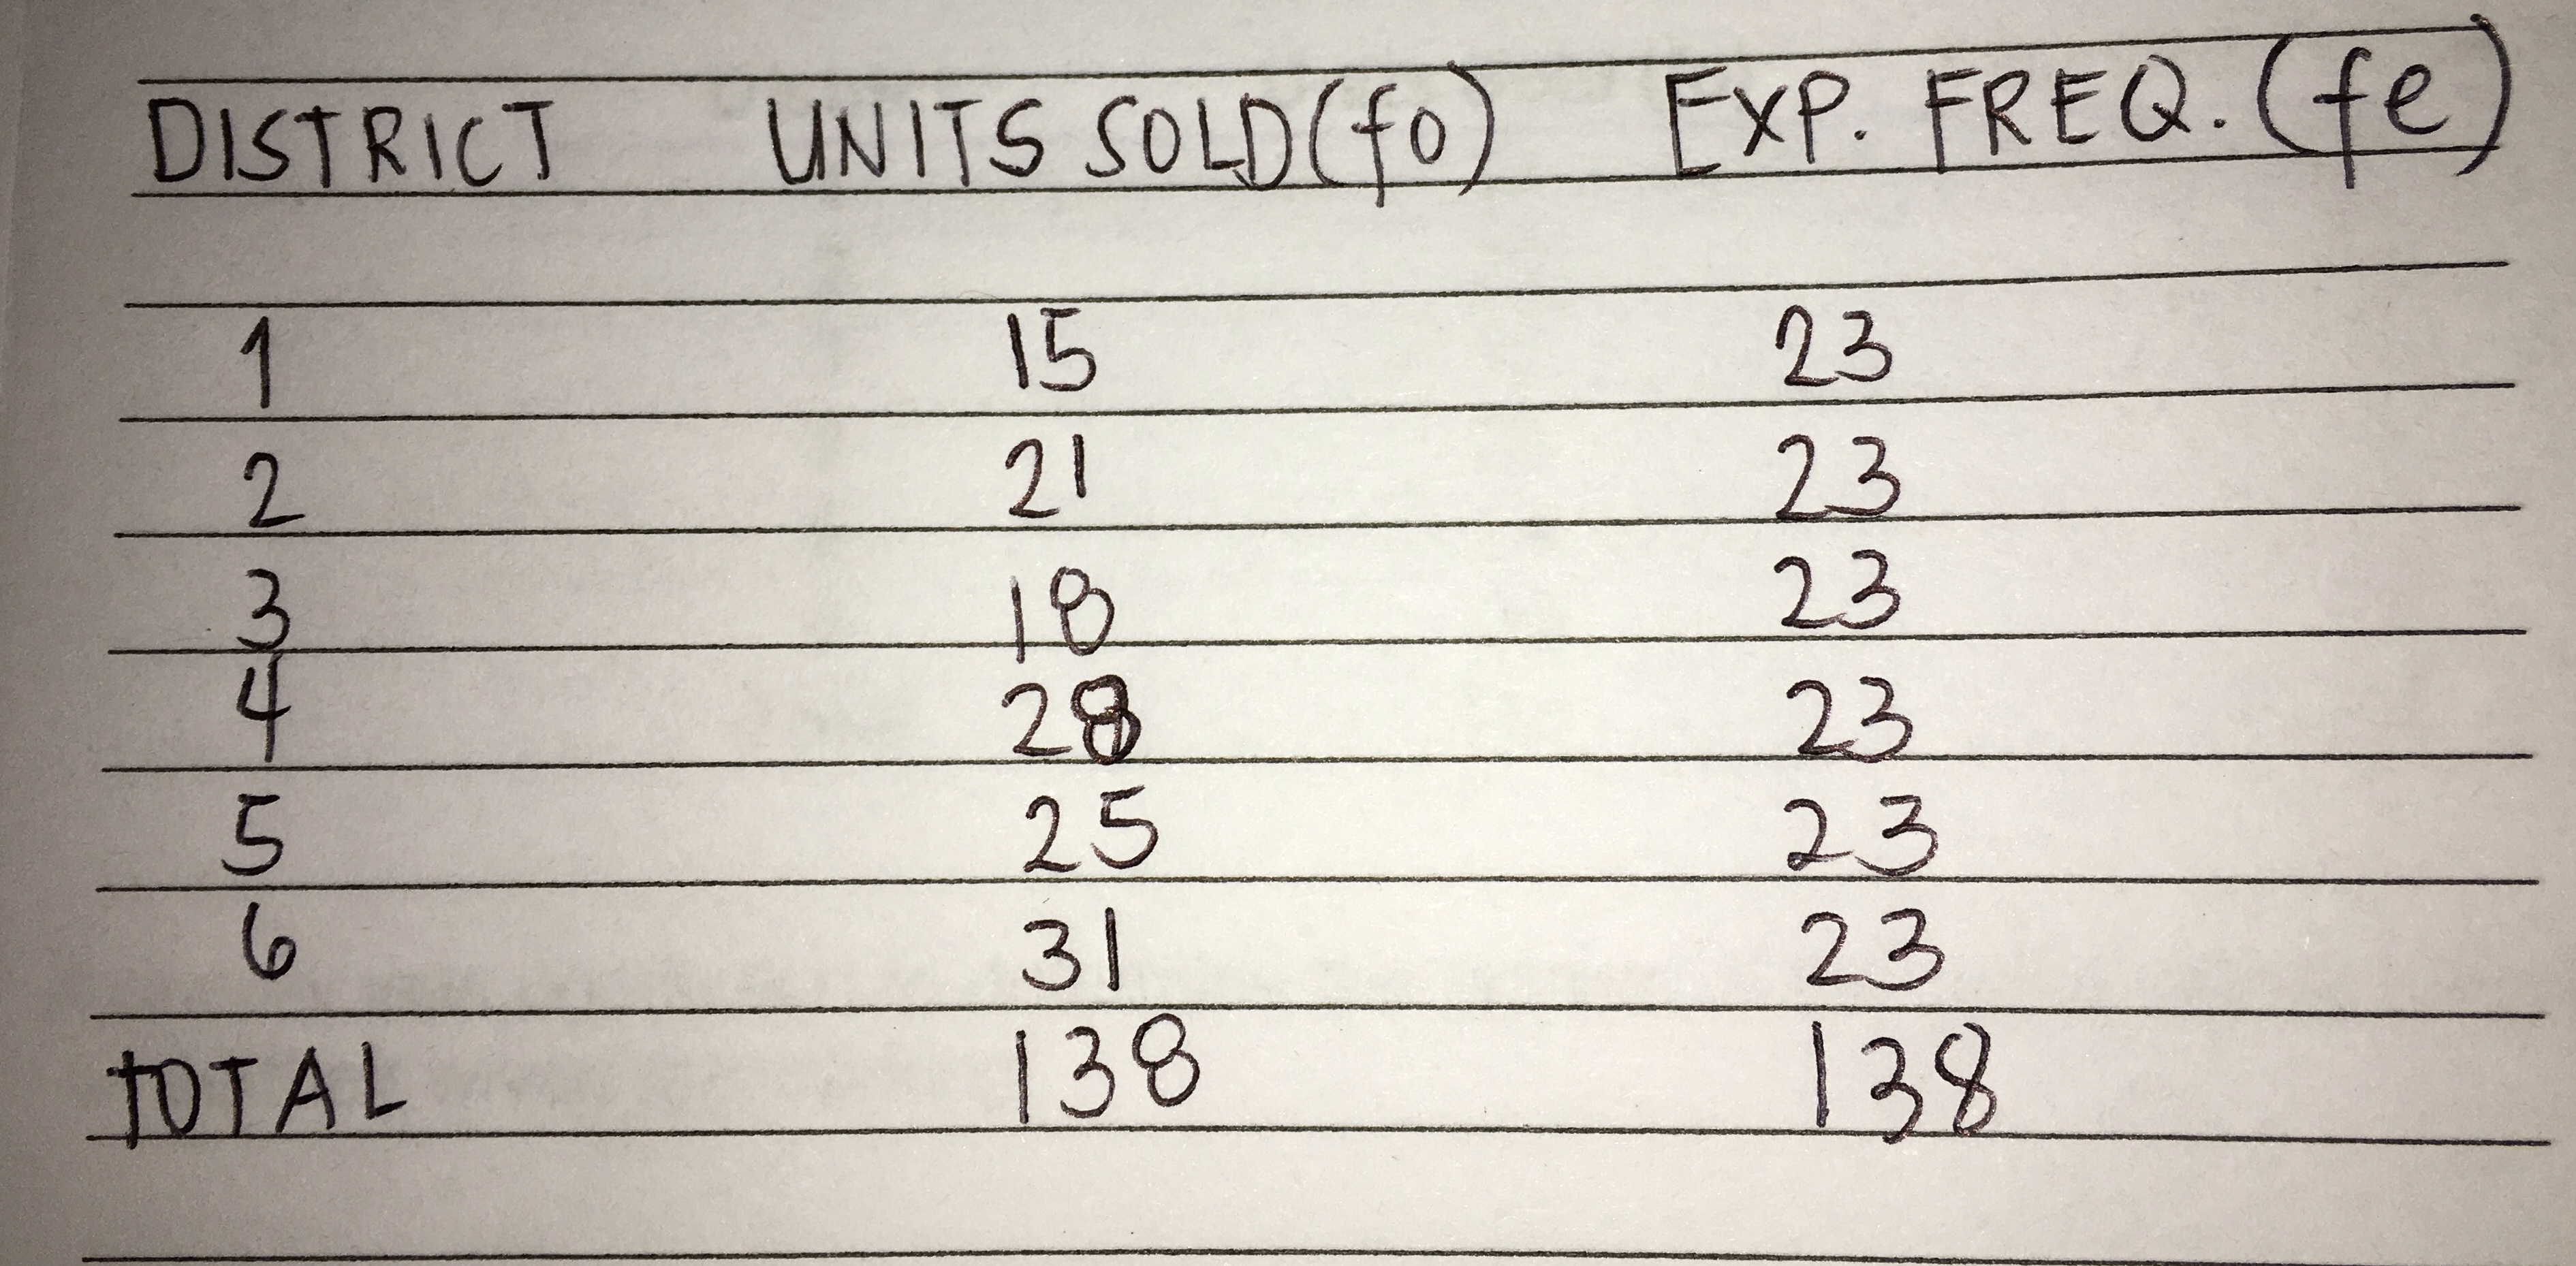 DISTRICT UNITS SOLD (fo) EXP. FREQ. (fe)
1 15 23
2 21 23
3 18 23
4 28 23
5 25 23
6 31 23
TOTAL 138 138